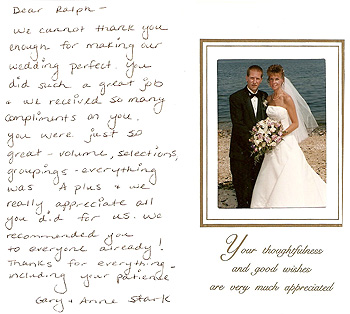 Dear Ralph -
We cannot thank you
enough for making our
wedding perfect. You
did such a great job
& we received so many
compliments on you.
You were just so
great - volume, selections,
groupings - everything
was A plus & we
really appreciate all
you did for us. We
recommended you
to everyone already!
Thanks for everything -
including your patience -
Gary & Anne Stark
Your thoughtfulness
and good wishes
are very much appreciated